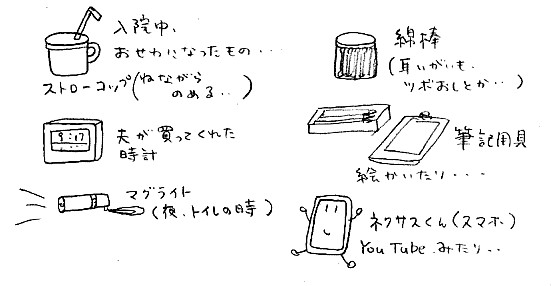 入院中、
おせわになったもの・・・
ストローコップ(ねながら
のめる・・)
9:17
夫が買ってくれた
時計
マグライト
(夜、トイレの時)
綿棒
(耳いがいも、
ツボおしとか・・)
筆記用具
絵かいたり・・・・
ネクサスくん(スマホ)
YouTubeみたり・・